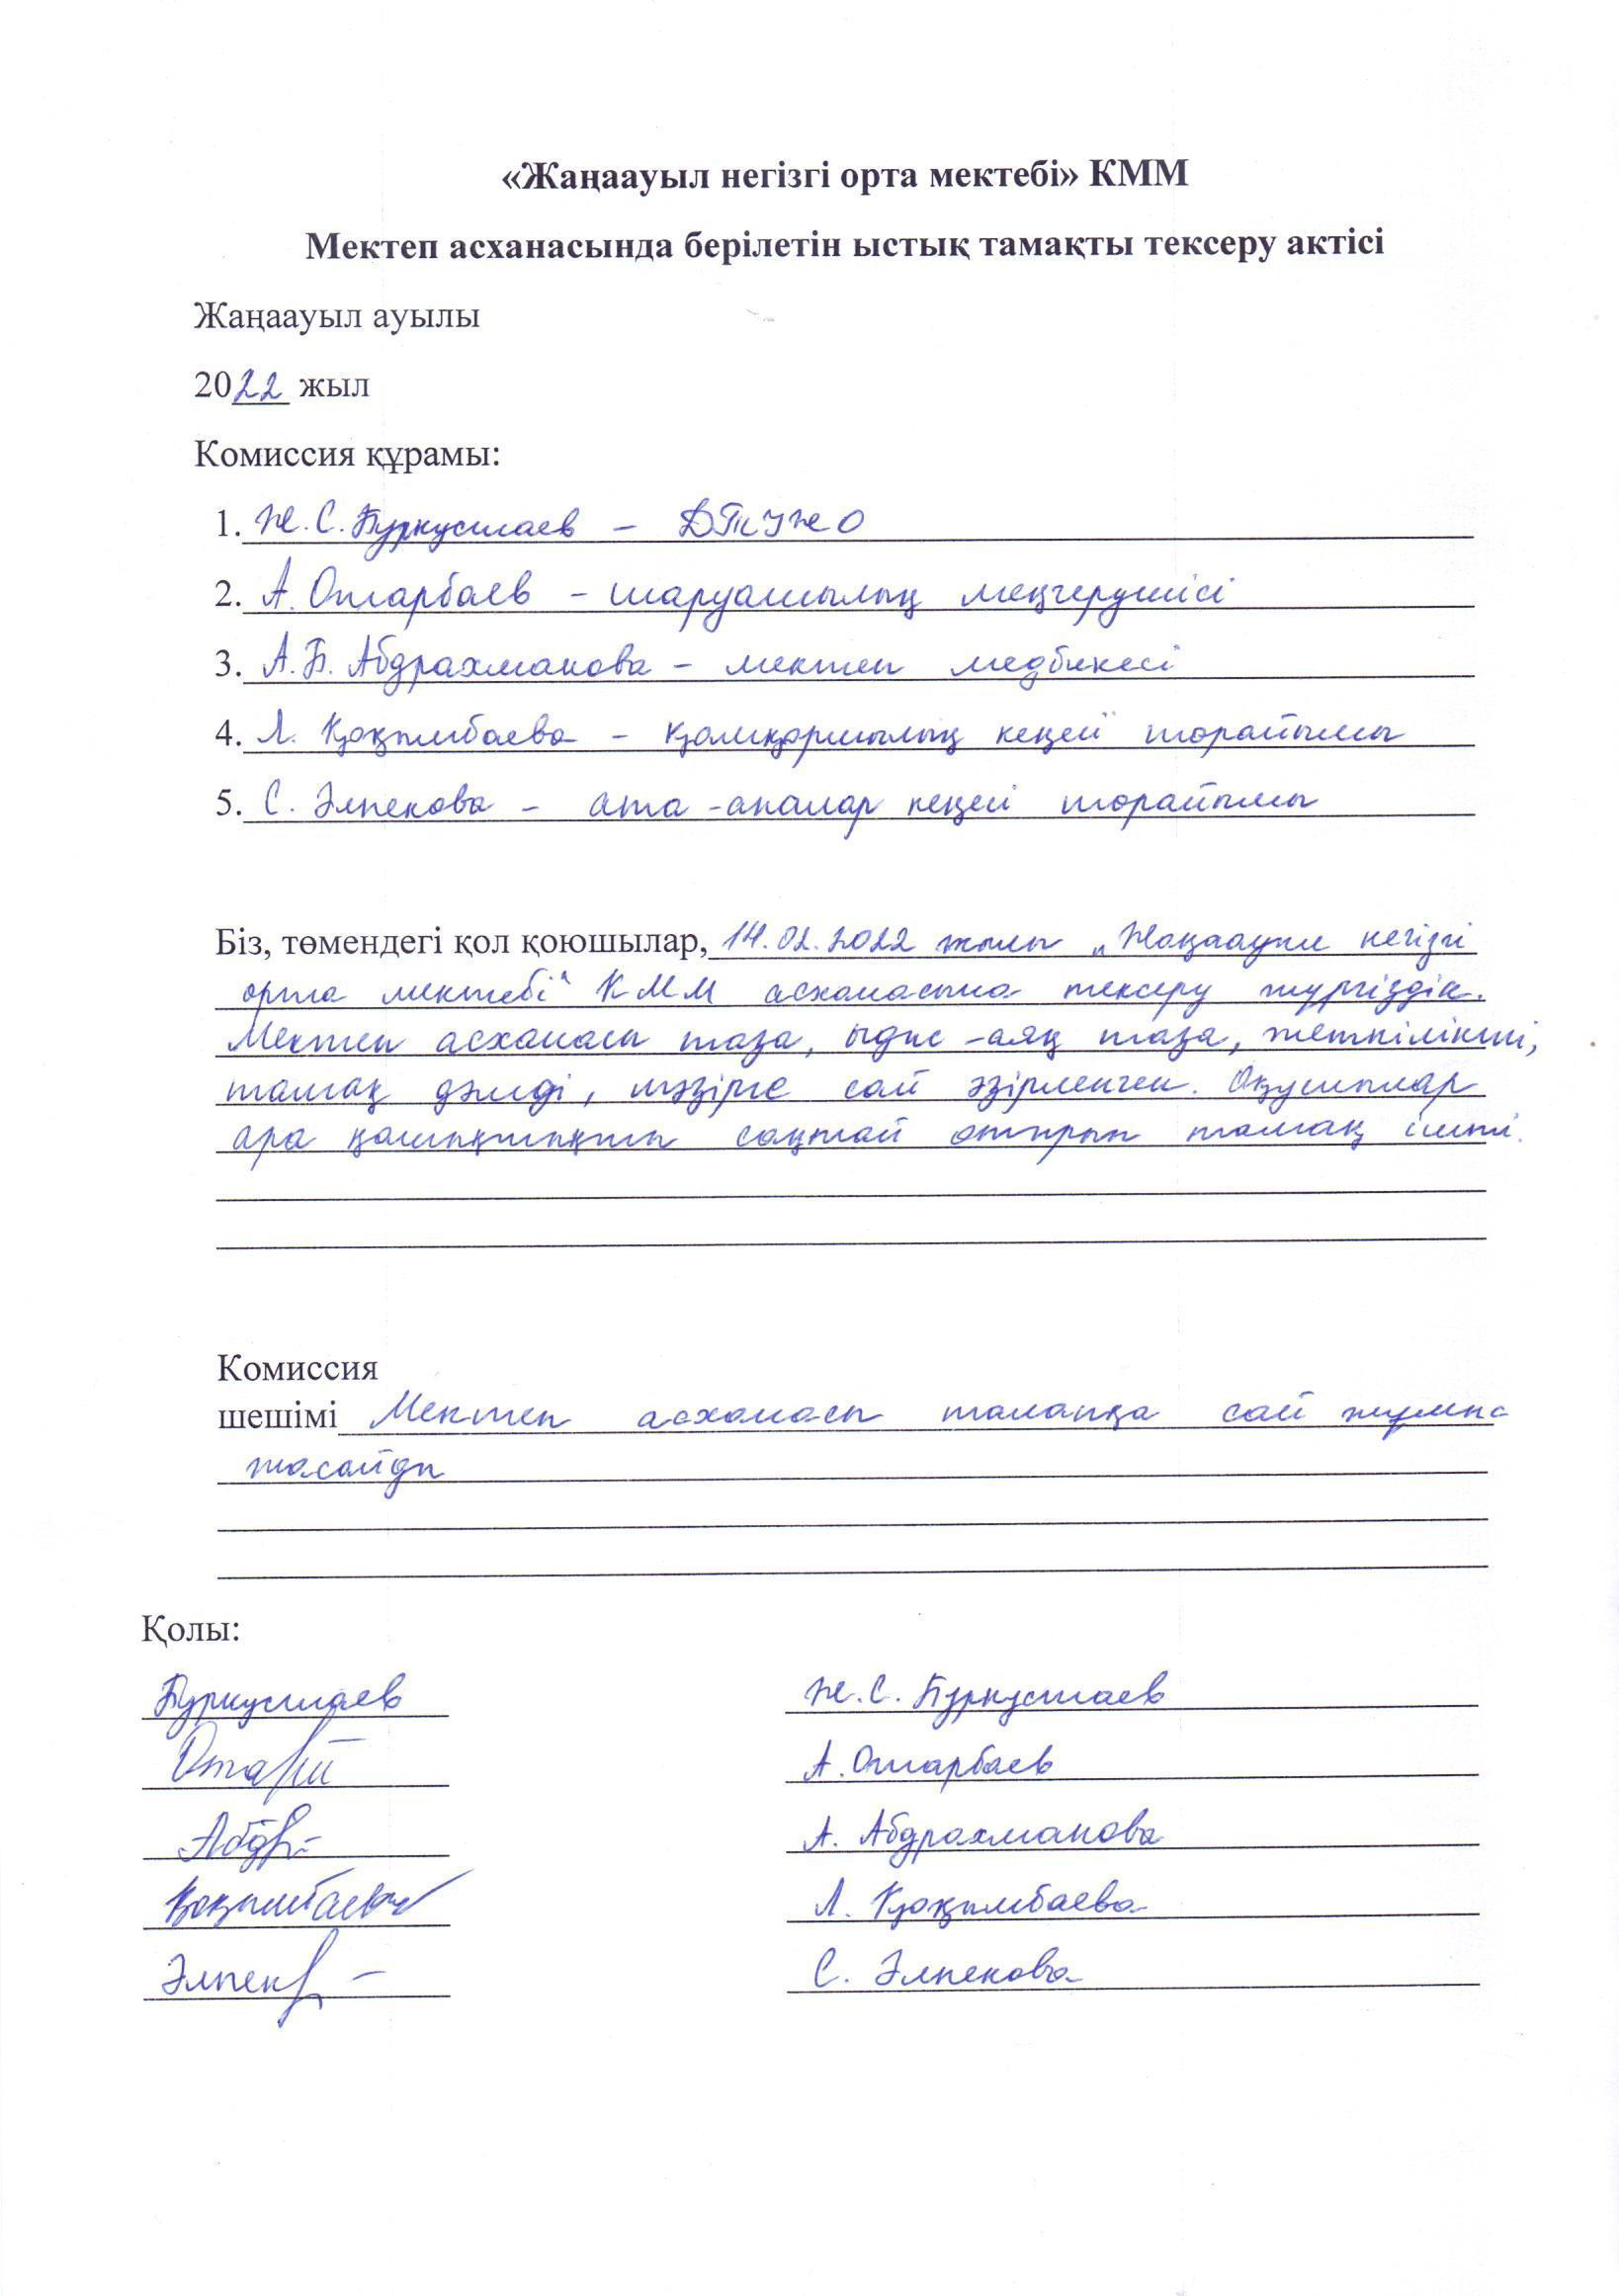 «Жаңаауыл негізгі орта мектебі» КММ
Мектеп асханасында берілетін ыстық тамақты тексеру актісі
Жаңаауыл ауылы
2022 жыл
Комиссия құрамы:
1. Ж. С. Буркустаев – ДТІЖО
2. А. Отарбаев – шаруашылық меңгерушісі
3. А.Б. Абдрахманова – мектеп медбикесі
4. Л. Қожымбаева – қамқоршылық кеңесі төрайымы
5. С. Әлпекова – ата-аналар кеңесі төрайымы
Біз, төмендегі қол қоюшылар, 14.02.2022 жылы „Жаңаауыл негізгі
орта мектебі“ КММ асханасына тексеру жүргіздік.
Мектеп асханасы таза, ыдыс-аяқ таза, жеткілікті,
тамақ дәмді, мәзірге сай әзірленген. Оқушылар
ара қашықтықты сақтай отырып тамақ ішті.
Комиссия
шешімі Мектеп асханасы талапқа сай жұмыс
жасайды
Қолы:
Буркустаев Ж.С. Буркустаев
А. Отарбаев
А. Абдрахманова
Қожымбаева Л. Қожымбаева
С. Әлпекова